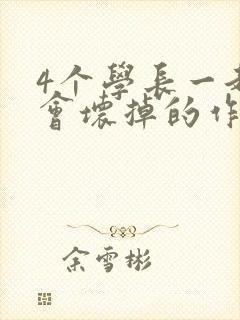 4个學長一
會壞掉的作
余雪彬